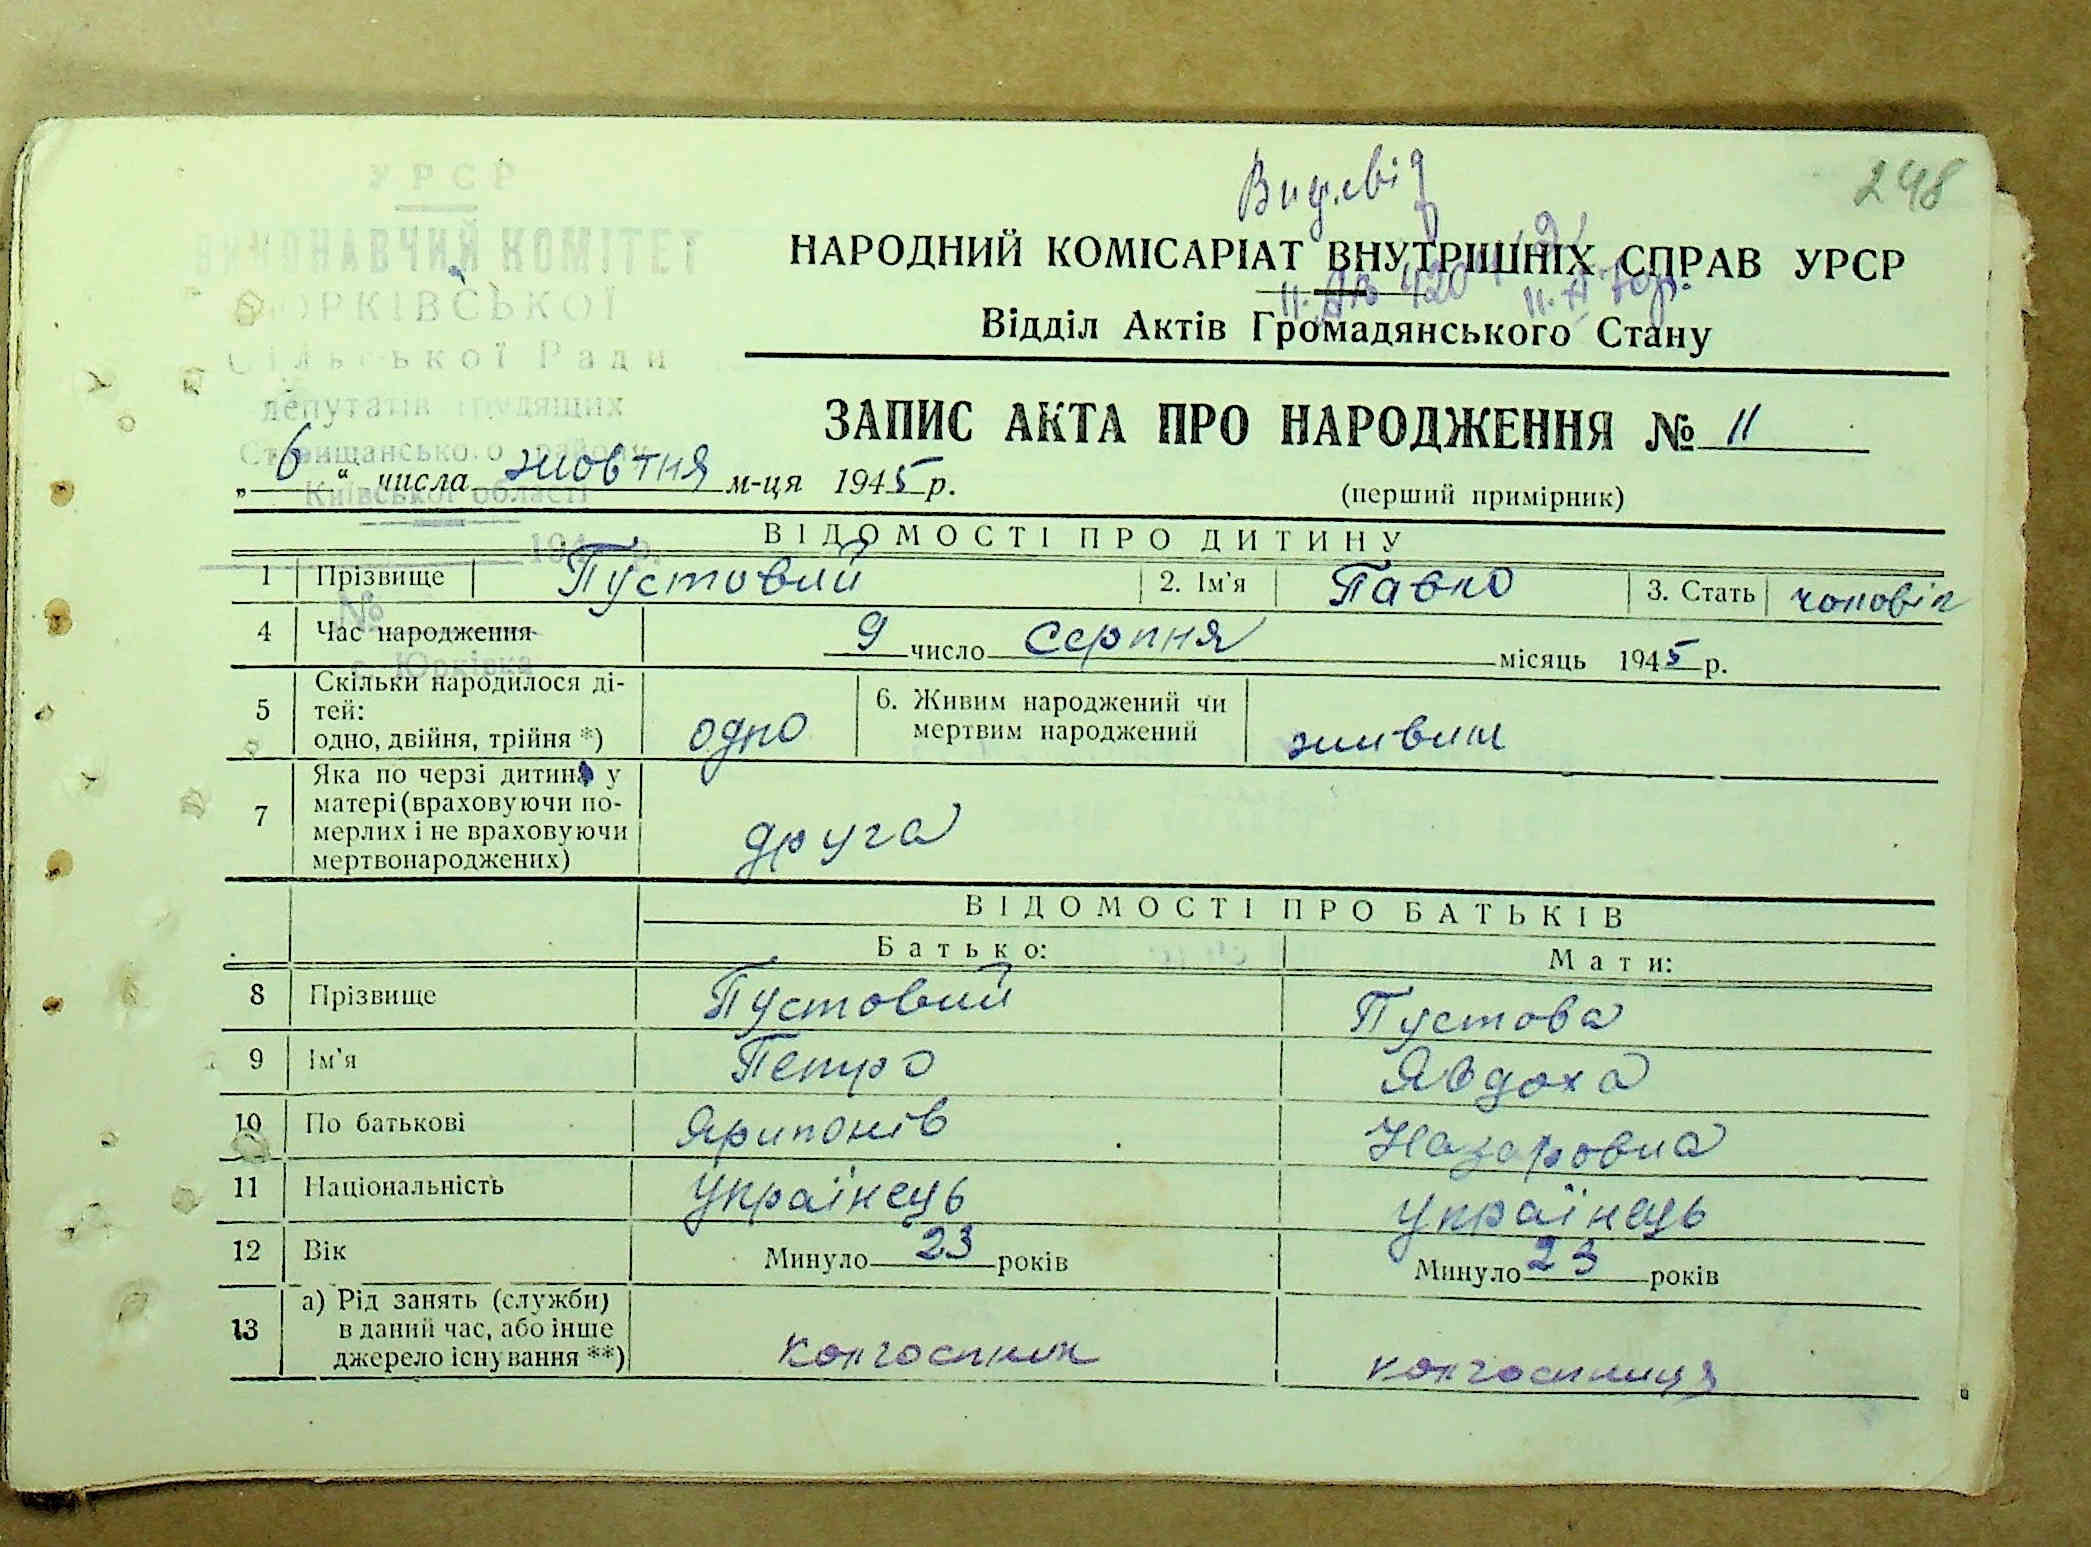 248
Вид. свід
УРСР
ВИКОНАВЧИЙ КОМІТЕТ
ЮРКІВСЬКОЇ
Сільської Ради
депутатів трудящих
Ставищанського району
Київської області
194 р.
№
с. Юрківка
НАРОДНИЙ КОМІСАРІАТ ВНУТРІШНІХ СПРАВ УРСР
Відділ Актів Громадянського Стану
ЗАПИС АКТА ПРО НАРОДЖЕННЯ № 11
„6“ числа жовтня м-ця 1945 р.
(перший примірник)
ВІДОМОСТІ ПРО ДИТИНУ
1 Прізвище Пустовий 2. Ім'я Павло 3. Стать чоловіч
4 Час народження 9 число серпня місяць 1945 р.
5 Скільки народилося ді-
тей:
одно, двійня, трійня *) одно
6. Живим народжений чи
мертвим народжений живим
7 Яка по черзі дитина у
матері (враховуючи по-
мерлих і не враховуючи
мертвонароджених) друга
ВІДОМОСТІ ПРО БАТЬКІВ
Батько: Мати:
8 Прізвище Пустовий Пустова
9 Ім'я Петро Явдоха
10 По батькові Назаровна
11 Національність українець українець
12 Вік Минуло 23 років Минуло 23 років
13 а) Рід занять (служби)
в даний час, або інше
джерело існування **) колгоспник колгоспниця